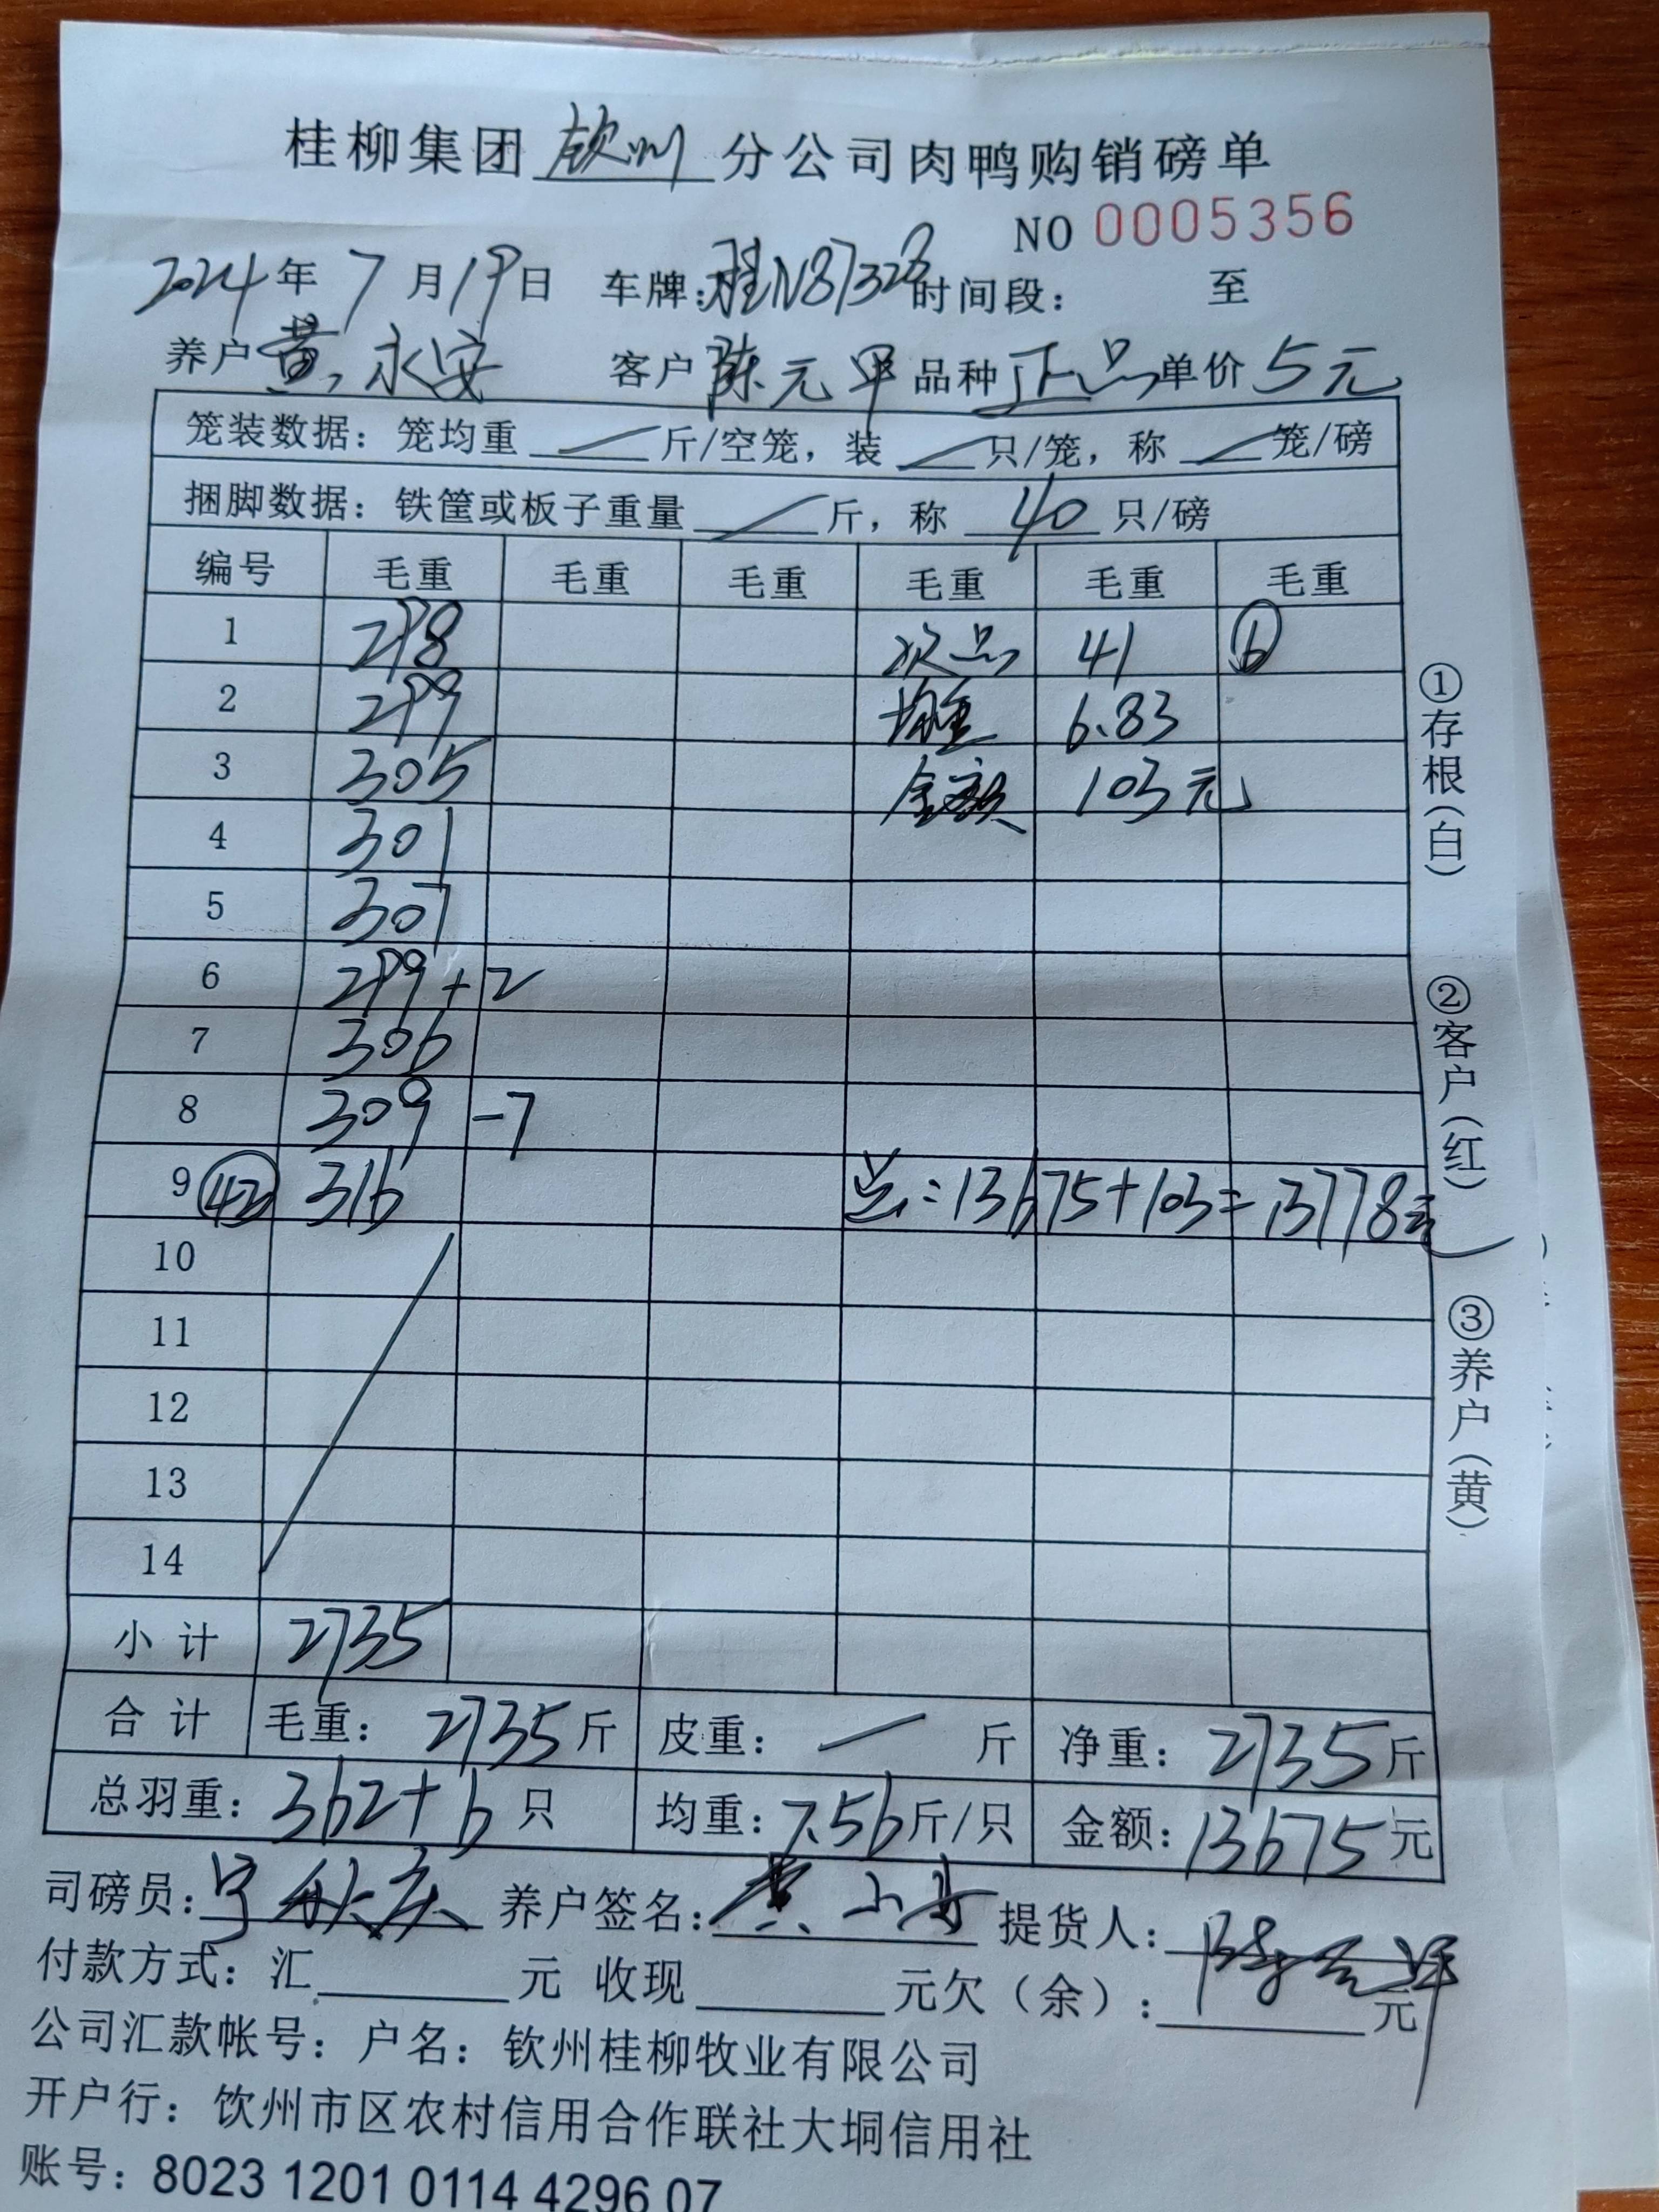 桂柳集团 钦州 分公司肉鸭购销磅单
NO 0005356
2024年 7月19日 车牌:桂N87328 时间段: 至
养户 黄永安 客户 陈元甲 品种 正品 单价 5元
笼装数据:笼均重 — 斤/空笼,装 — 只/笼,称 — 笼/磅
捆脚数据:铁筐或板子重量 — 斤,称 40 只/磅
编号 毛重 毛重 毛重 毛重 毛重 毛重
1 298 次品 41 ⑥
2 299 均重 6.83
3 305 金额 103元
4 301
5 307
6 299 +2
7 306
8 309 -7
9 ㊷ 316 总:13675+103=13778元
10
11
12
13
14
小计 2735
合计 毛重: 2735斤 皮重: — 斤 净重: 2735斤
总羽重: 362+6 只 均重:7.56斤/只 金额:13675元
司磅员: 养户签名:黄 提货人:
付款方式:汇 元 收现 元欠(余): 元
公司汇款帐号:户名:钦州桂柳牧业有限公司
开户行:饮州市区农村信用合作联社大垌信用社
账号:8023 1201 0114 4296 07
①存根(白)
②客户(红)
③养户(黄)